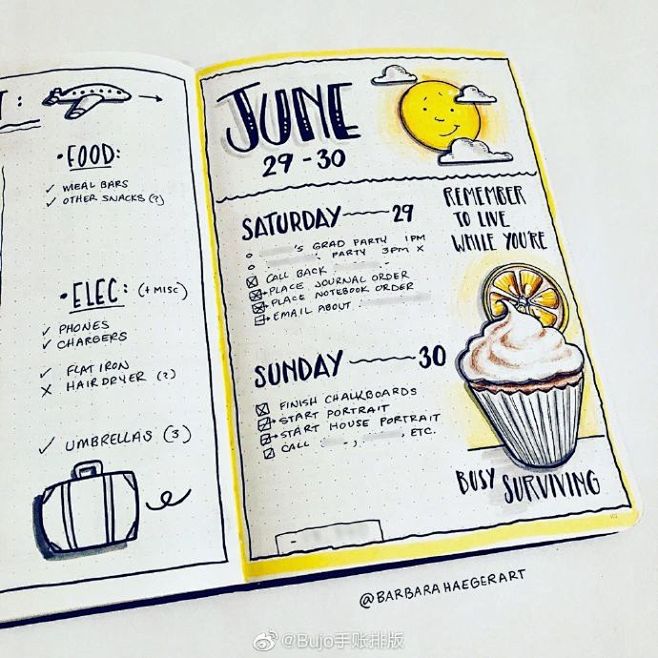 T:
•FOOD:
✓ MEAL BARS
✓ OTHER SNACKS (?)
•ELEC: (+ MISC)
✓ PHONES
✓ CHARGERS
✓ FLAT IRON
X HAIRDRYER (?)
✓ UMBRELLAS (3)
JUNE
29 - 30
SATURDAY 29
'S GRAD PARTY 1PM
PARTY 3PM X
CALL BACK
PLACE JOURNAL ORDER
PLACE NOTEBOOK ORDER
EMAIL ABOUT
SUNDAY 30
FINISH CHALKBOARDS
START PORTRAIT
START HOUSE PORTRAIT
CALL , , ETC.
REMEMBER
TO LIVE
WHILE YOU'RE
BUSY SURVIVING
@BARBARAHAEGERART
@Bujo手账排版